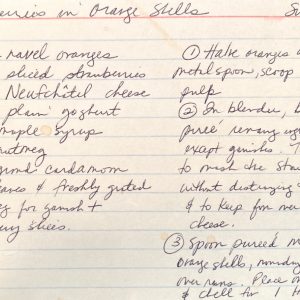 erries in Orange Shells
navel oranges
sliced strawberries
Neufchâtel cheese
plain yoghurt
maple syrup
nutmeg
ground cardamom
eaves & freshly grated
eg for garnish +
erry slices.
① Halve oranges
metal spoon, scoop
pulp
② In blender,
pureé remaining
except garnishes. T
to mash the
without destroying
& to keep from over
cheese.
③ Spoon pureéd m
orange shells,
over rims. Place on
& chill for 1 h